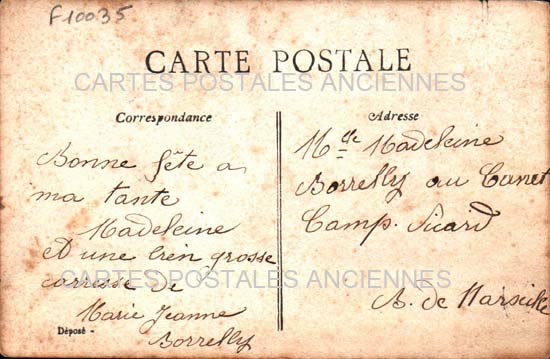 F10035
CARTE POSTALE
CARTES POSTALES ANCIENNES
Correspondance
Bonne fête a
ma tante
Madeleine
et une bien grosse
carresse de
CARTES POSTALES ANCIENNES
Marie Jeanne
Borrelly
Déposé -
Adresse
Mlle Madeleine
Borrelly au Canet
Camp. Sicard
B. de Marseille